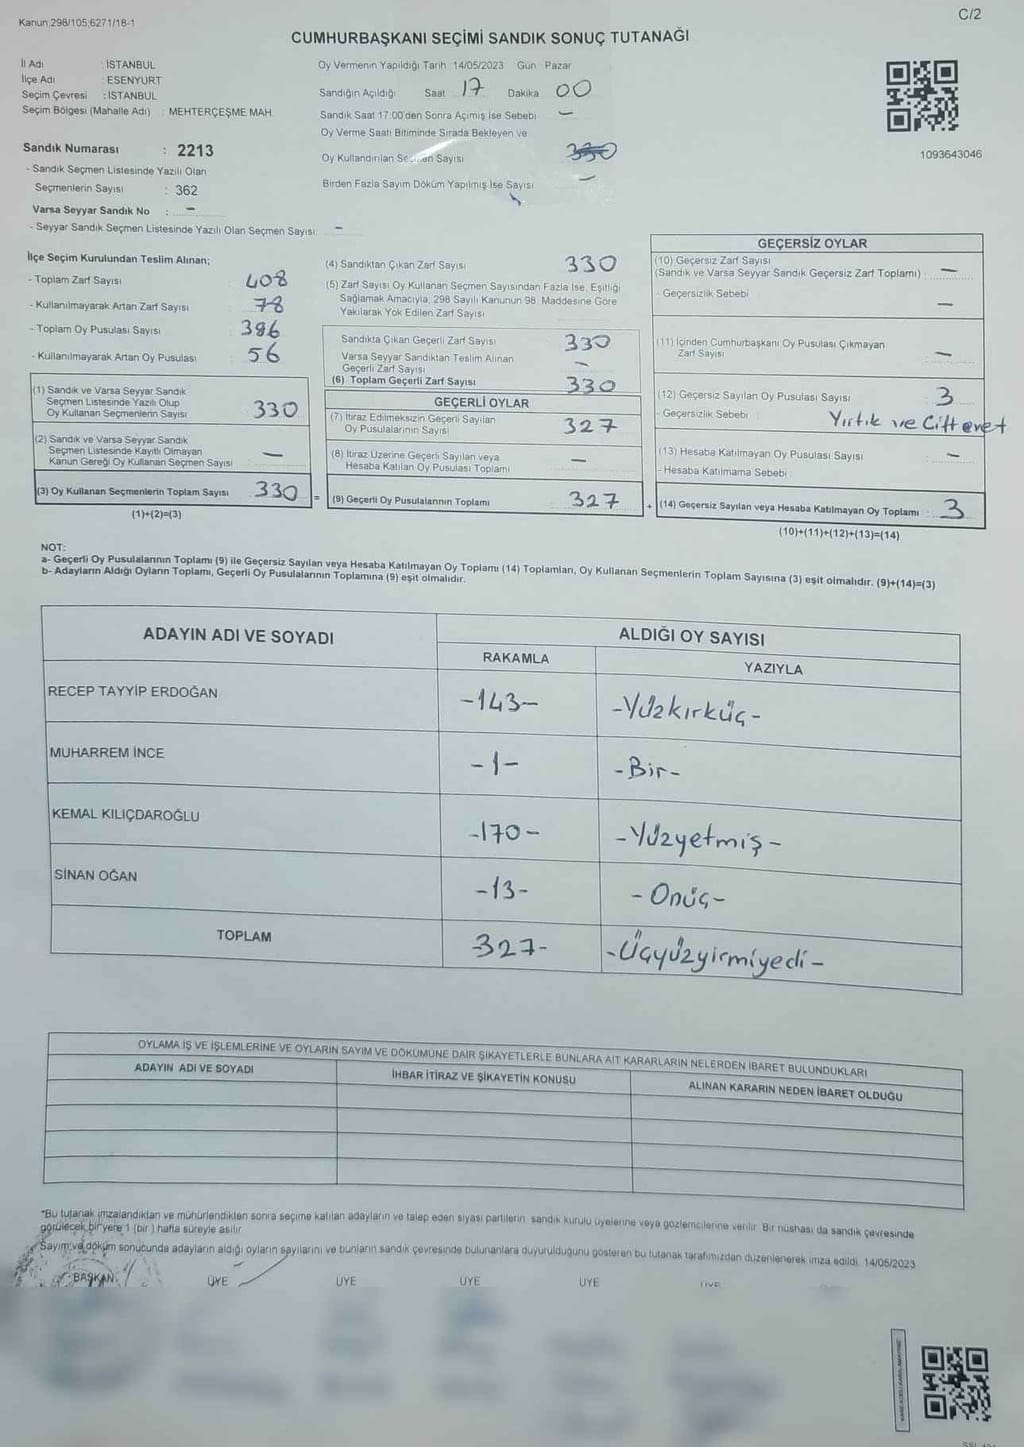 Kanun;298/105;6271/18-1
C/2
CUMHURBAŞKANI SEÇİMİ SANDIK SONUÇ TUTANAĞI
İl Adı : İSTANBUL
İlçe Adı : ESENYURT
Seçim Çevresi : İSTANBUL
Seçim Bölgesi (Mahalle Adı) : MEHTERÇEŞME MAH.
Sandık Numarası : 2213
- Sandık Seçmen Listesinde Yazılı Olan
Seçmenlerin Sayısı : 362
Varsa Seyyar Sandık No : -
- Seyyar Sandık Seçmen Listesinde Yazılı Olan Seçmen Sayısı: -
Oy Vermenin Yapıldığı Tarih 14/05/2023 Gün Pazar
Sandığın Açıldığı Saat 17 Dakika 00
Sandık Saat 17:00'den Sonra Açımış İse Sebebi -
Oy Verme Saati Bitiminde Sırada Bekleyen ve
Oy Kullandırılan Seçmen Sayısı 330
Birden Fazla Sayım Döküm Yapılmış İse Sayısı -
1093643046
İlçe Seçim Kurulundan Teslim Alınan;
- Toplam Zarf Sayısı : 408
- Kullanılmayarak Artan Zarf Sayısı : 78
- Toplam Oy Pusulası Sayısı : 386
- Kullanılmayarak Artan Oy Pusulası : 56
(1) Sandık ve Varsa Seyyar Sandık
Seçmen Listesinde Yazılı Olup
Oy Kullanan Seçmenlerin Sayısı 330
(2) Sandık ve Varsa Seyyar Sandık
Seçmen Listesinde Kayıtlı Olmayan
Kanun Gereği Oy Kullanan Seçmen Sayısı -
(3) Oy Kullanan Seçmenlerin Toplam Sayısı 330
(1)+(2)=(3)
(4) Sandıktan Çıkan Zarf Sayısı 330
(5) Zarf Sayısı Oy Kullanan Seçmen Sayısından Fazla İse, Eşitliği
Sağlamak Amacıyla; 298 Sayılı Kanunun 98. Maddesine Göre
Yakılarak Yok Edilen Zarf Sayısı
Sandıkta Çıkan Geçerli Zarf Sayısı 330
Varsa Seyyar Sandıktan Teslim Alınan
Geçerli Zarf Sayısı -
(6) Toplam Geçerli Zarf Sayısı 330
GEÇERLİ OYLAR
(7) İtiraz Edilmeksizin Geçerli Sayılan
Oy Pusulalarının Sayısı 327
(8) İtiraz Üzerine Geçerli Sayılan veya
Hesaba Katılan Oy Pusulası Toplamı -
= (9) Geçerli Oy Pusulalarının Toplamı 327
GEÇERSİZ OYLAR
(10) Geçersiz Zarf Sayısı
(Sandık ve Varsa Seyyar Sandık Geçersiz Zarf Toplamı) : -
- Geçersizlik Sebebi -
(11) İçinden Cumhurbaşkanı Oy Pusulası Çıkmayan
Zarf Sayısı -
(12) Geçersiz Sayılan Oy Pusulası Sayısı 3
- Geçersizlik Sebebi : Yırtık ve Cift evet
(13) Hesaba Katılmayan Oy Pusulası Sayısı -
- Hesaba Katılmama Sebebi :
+ (14) Geçersiz Sayılan veya Hesaba Katılmayan Oy Toplamı 3
(10)+(11)+(12)+(13)=(14)
NOT:
a- Geçerli Oy Pusulalarının Toplamı (9) ile Geçersiz Sayılan veya Hesaba Katılmayan Oy Toplamı (14) Toplamları, Oy Kullanan Seçmenlerin Toplam Sayısına (3) eşit olmalıdır. (9)+(14)=(3)
b- Adayların Aldığı Oyların Toplamı, Geçerli Oy Pusulalarının Toplamına (9) eşit olmalıdır.
ADAYIN ADI VE SOYADI ALDIĞI OY SAYISI
RAKAMLA YAZIYLA
RECEP TAYYİP ERDOĞAN -143- -Yüzkırküç-
MUHARREM İNCE -1- -Bir-
KEMAL KILIÇDAROĞLU -170- -Yüzyetmiş-
SİNAN OĞAN -13- -Onüç-
TOPLAM -327- -Üçyüzyirmiyedi-
OYLAMA İŞ VE İŞLEMLERİNE VE OYLARIN SAYIM VE DÖKÜMÜNE DAİR ŞİKAYETLERLE BUNLARA AİT KARARLARIN NELERDEN İBARET BULUNDUKLARI
ADAYIN ADI VE SOYADI İHBAR İTİRAZ VE ŞİKAYETİN KONUSU ALINAN KARARIN NEDEN İBARET OLDUĞU
*Bu tutanak imzalandıktan ve mühürlendikten sonra seçime katılan adayların ve talep eden siyasi partilerin sandık kurulu üyelerine veya gözlemcilerine verilir. Bir nüshası da sandık çevresinde
görülecek bir yere 1 (bir ) hafta süreyle asılır.
Sayım ve döküm sonucunda adayların aldığı oyların sayılarını ve bunların sandık çevresinde bulunanlara duyurulduğunu gösteren bu tutanak tarafımızdan düzenlenerek imza edildi. 14/05/2023
BAŞKAN ÜYE ÜYE ÜYE ÜYE ÜYE